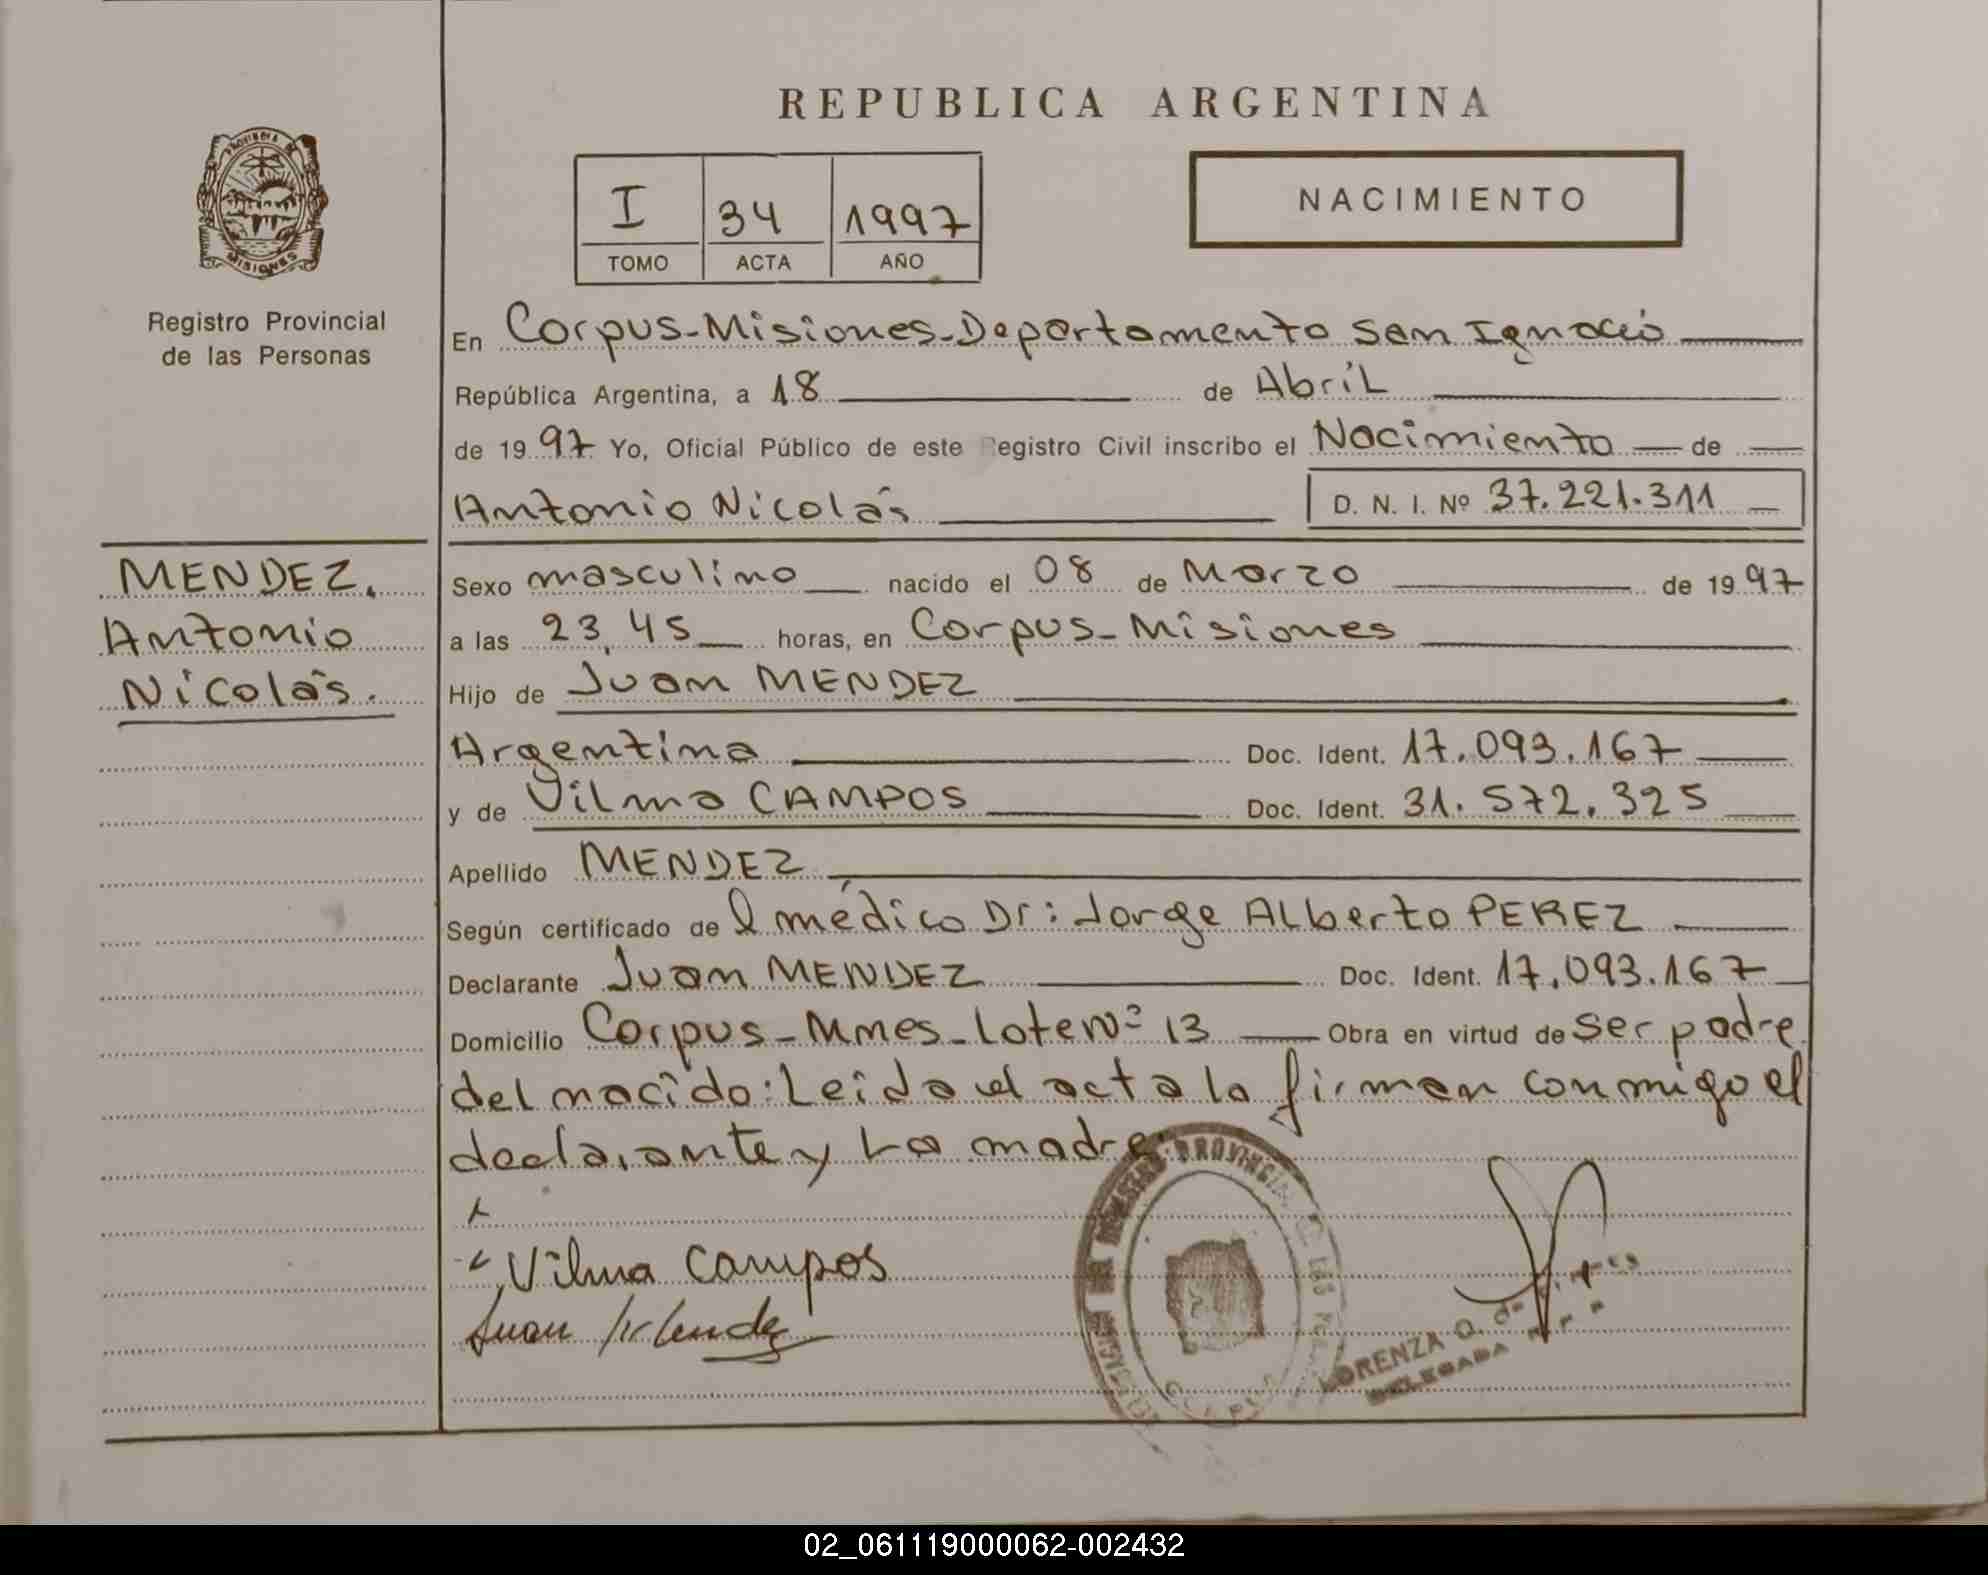 REPUBLICA ARGENTINA
PROVINCIA DE
MISIONES
Registro Provincial
de las Personas
I 34 1997
TOMO ACTA AÑO
NACIMIENTO
En Corpus-Misiones-Departamento San Ignacio
República Argentina, a 18 de Abril
de 1997 Yo, Oficial Público de este Registro Civil inscribo el Nacimiento de
Antonio Nicolás D. N. I. Nº 37.221.311
MENDEZ,
Antonio
Nicolás.
Sexo masculino nacido el 08 de Marzo de 1997
a las 23,45 horas, en Corpus-Misiones
Hijo de Juan MENDEZ
Argentina Doc. Ident. 17.093.167
y de Vilma CAMPOS Doc. Ident. 31.572.325
Apellido MENDEZ
Según certificado del médico Dr: Jorge ALberto PEREZ
Declarante Juan MENDEZ Doc. Ident. 17.093.167
Domicilio Corpus-Mnes-Lote Nº 13 Obra en virtud de ser padre
del nacido: Leida el acta la firman conmigo el
declarante y La madre.
Vilma Campos
Juan Mendez
REGISTRO PROVINCIAL DE LAS PERSONAS
CORPUS
LORENZA Q. de
DELEGADA
02_061119000062-002432